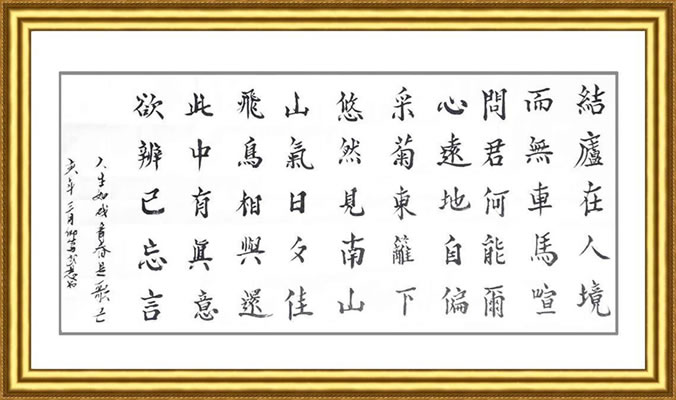 結廬在人境
而無車馬喧
問君何能爾
心遠地自偏
采菊東籬下
悠然見南山
山氣日夕佳
飛鳥相與還
此中有真意
欲辨已忘言
人生如
亥年三月